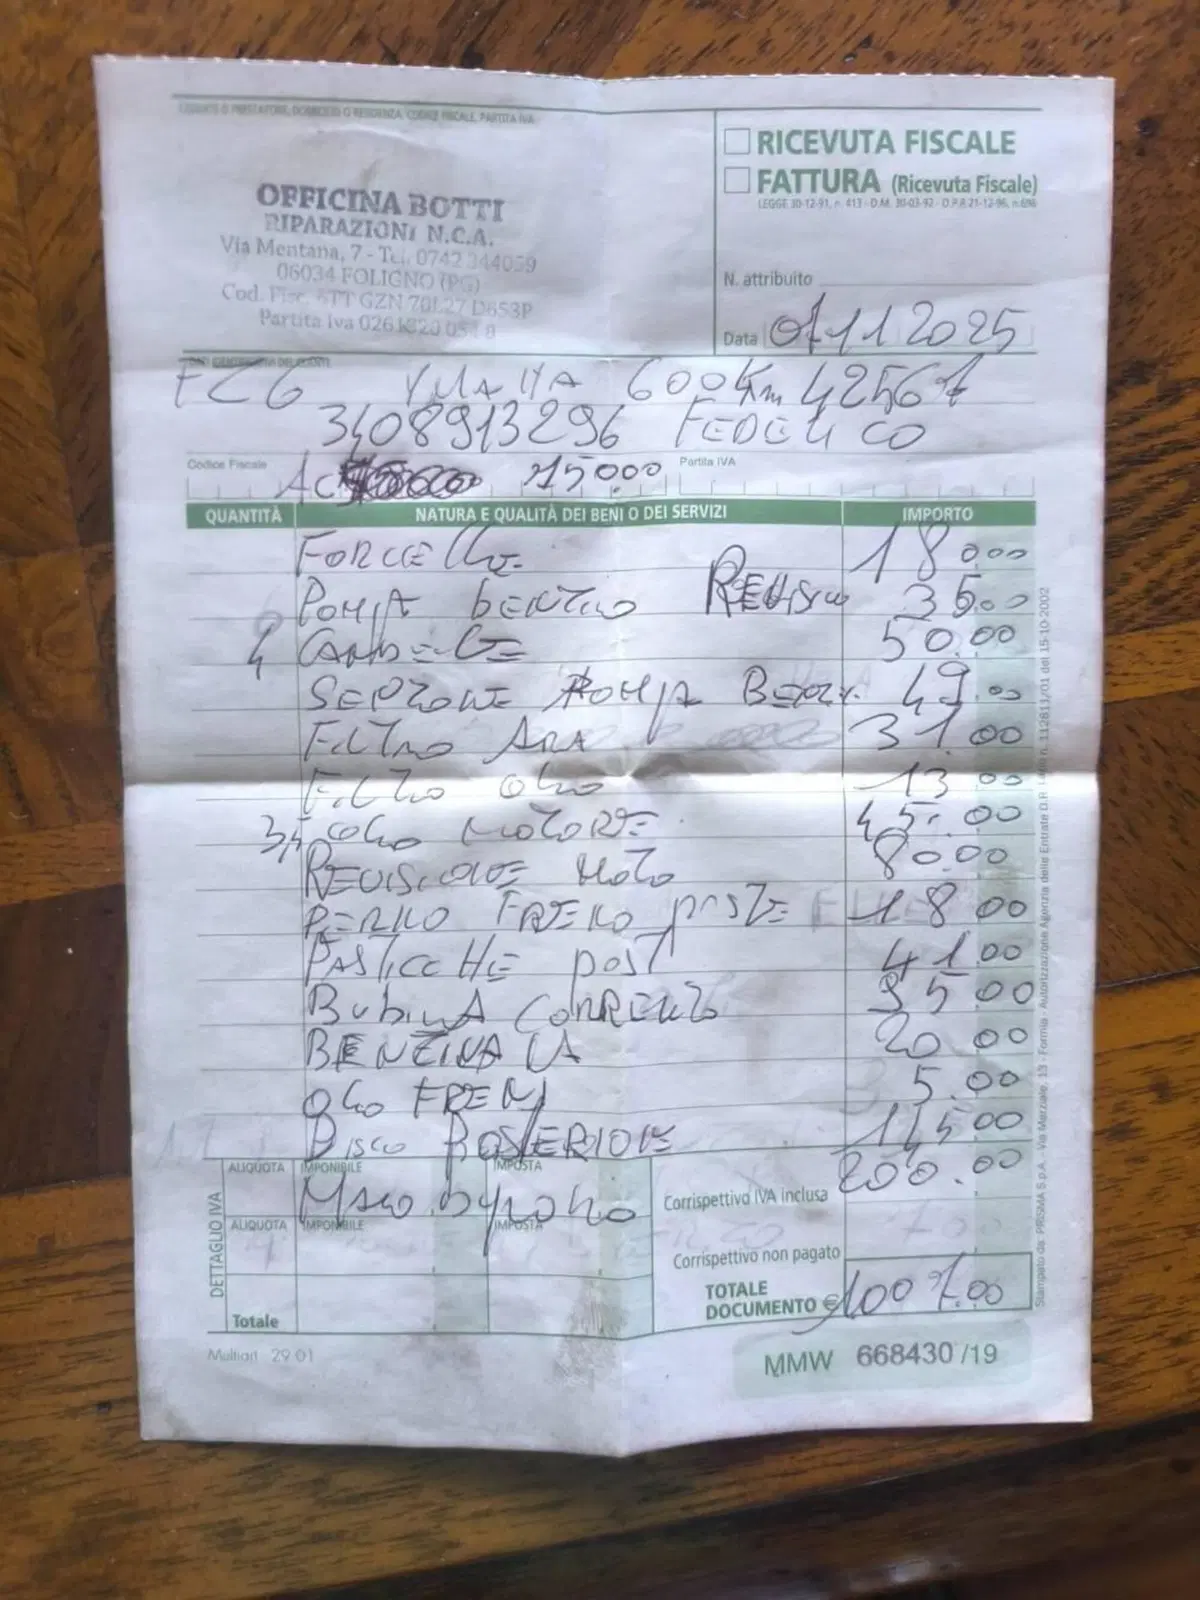 DITTA O PRESTATORE, DOMICILIO O RESIDENZA, CODICE FISCALE, PARTITA IVA
OFFICINA BOTTI
RIPARAZIONI N.C.A.
Via Mentana, 7 - Tel. 0742 344059
06034 FOLIGNO (PG)
Cod. Fisc. GZN 70L27 D653P
Partita Iva
RICEVUTA FISCALE
FATTURA (Ricevuta Fiscale)
LEGGE 30-12-91, n. 413 - D.M. 30-03-92 - D.P.R 21-12-96, n. 696
N. attribuito
Data 07 11 2025
FZ6 YMAHA 600 Km 42567
3408913296 FEDERICO
Codice Fiscale Partita IVA
AC 15000
QUANTITÀ NATURA E QUALITÀ DEI BENI O DEI SERVIZI IMPORTO
FORCELLE 180.00
POMPA BENZINA 35.00
4 CANDELE 50.00
POMPA BENZ. 49.00
FILTRO ARIA 31.00
FILTRO OLIO 13.00
3,5 OLIO MOTORE 45.00
REVISIONE MOTO 80.00
PERNO FRENO POSTE 18 00
PASTICCHE POST 41.00
BUBINA CORRENTE 00
BENZINA VA 20 00
OLIO FRENI 5.00
DISCO POSTERIORE 145 00
200.00
DETTAGLIO IVA
ALIQUOTA IMPONIBILE IMPOSTA
Corrispettivo IVA inclusa
MANO D'OPERA
ALIQUOTA IMPONIBILE IMPOSTA
Corrispettivo non pagato
Totale
TOTALE
DOCUMENTO € 1007.00
Multiart 29 01
MMW 668430 /19
Stampato da: PRISMA S.p.A. - Via Merziale, 13 - Formia - Autorizzazione Agenzia delle Entrate D.R. Lazio n. 112811/01 del 15-10-2002